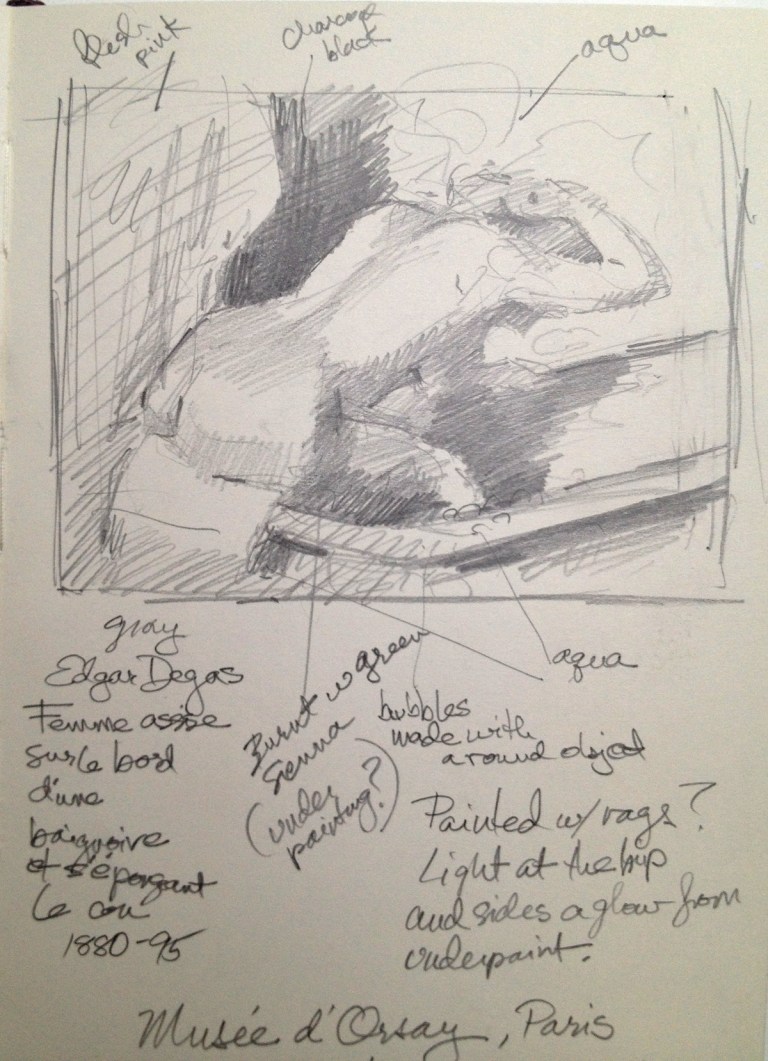 flesh
pink
charcoal
black
aqua
gray
Edgar Degas
Femme assise
sur le bord
d'une
baignoire
et s'épongeant
le cou
1880-95
Burnt w green
Sienna
(under
painting?)
aqua
bubbles
made with
around object
Painted w/ rags?
Light at the hip
and sides a glow from
underpaint.
Musée d'Orsay, Paris